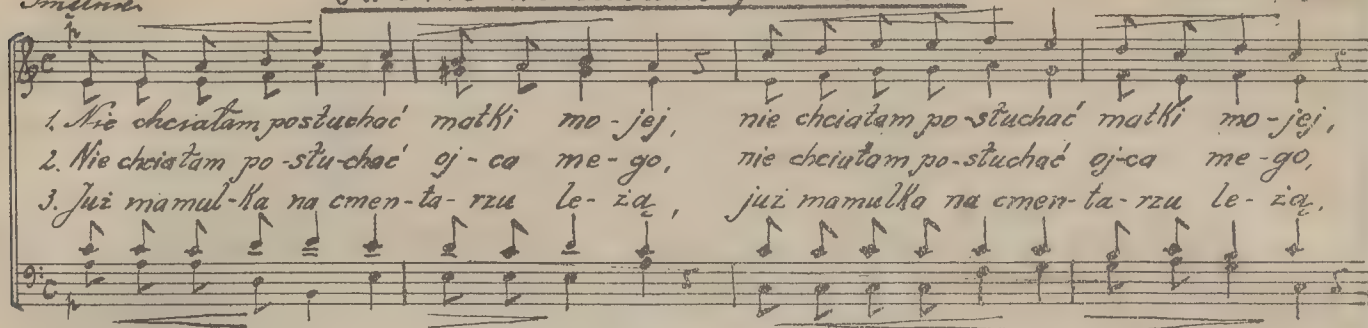 1. Nie chciałam postuchać matki mo-jej, nie chciałam po-słuchać matki mo-jej,
2. Nie chciałam po-słu-chać oj-ca me-go, nie chciałam po-słuchać oj-ca me-go,
3. Już mamul-ka na cmen-ta-rzu le-żą, już mamulka na cmen-ta-rzu le-żą,